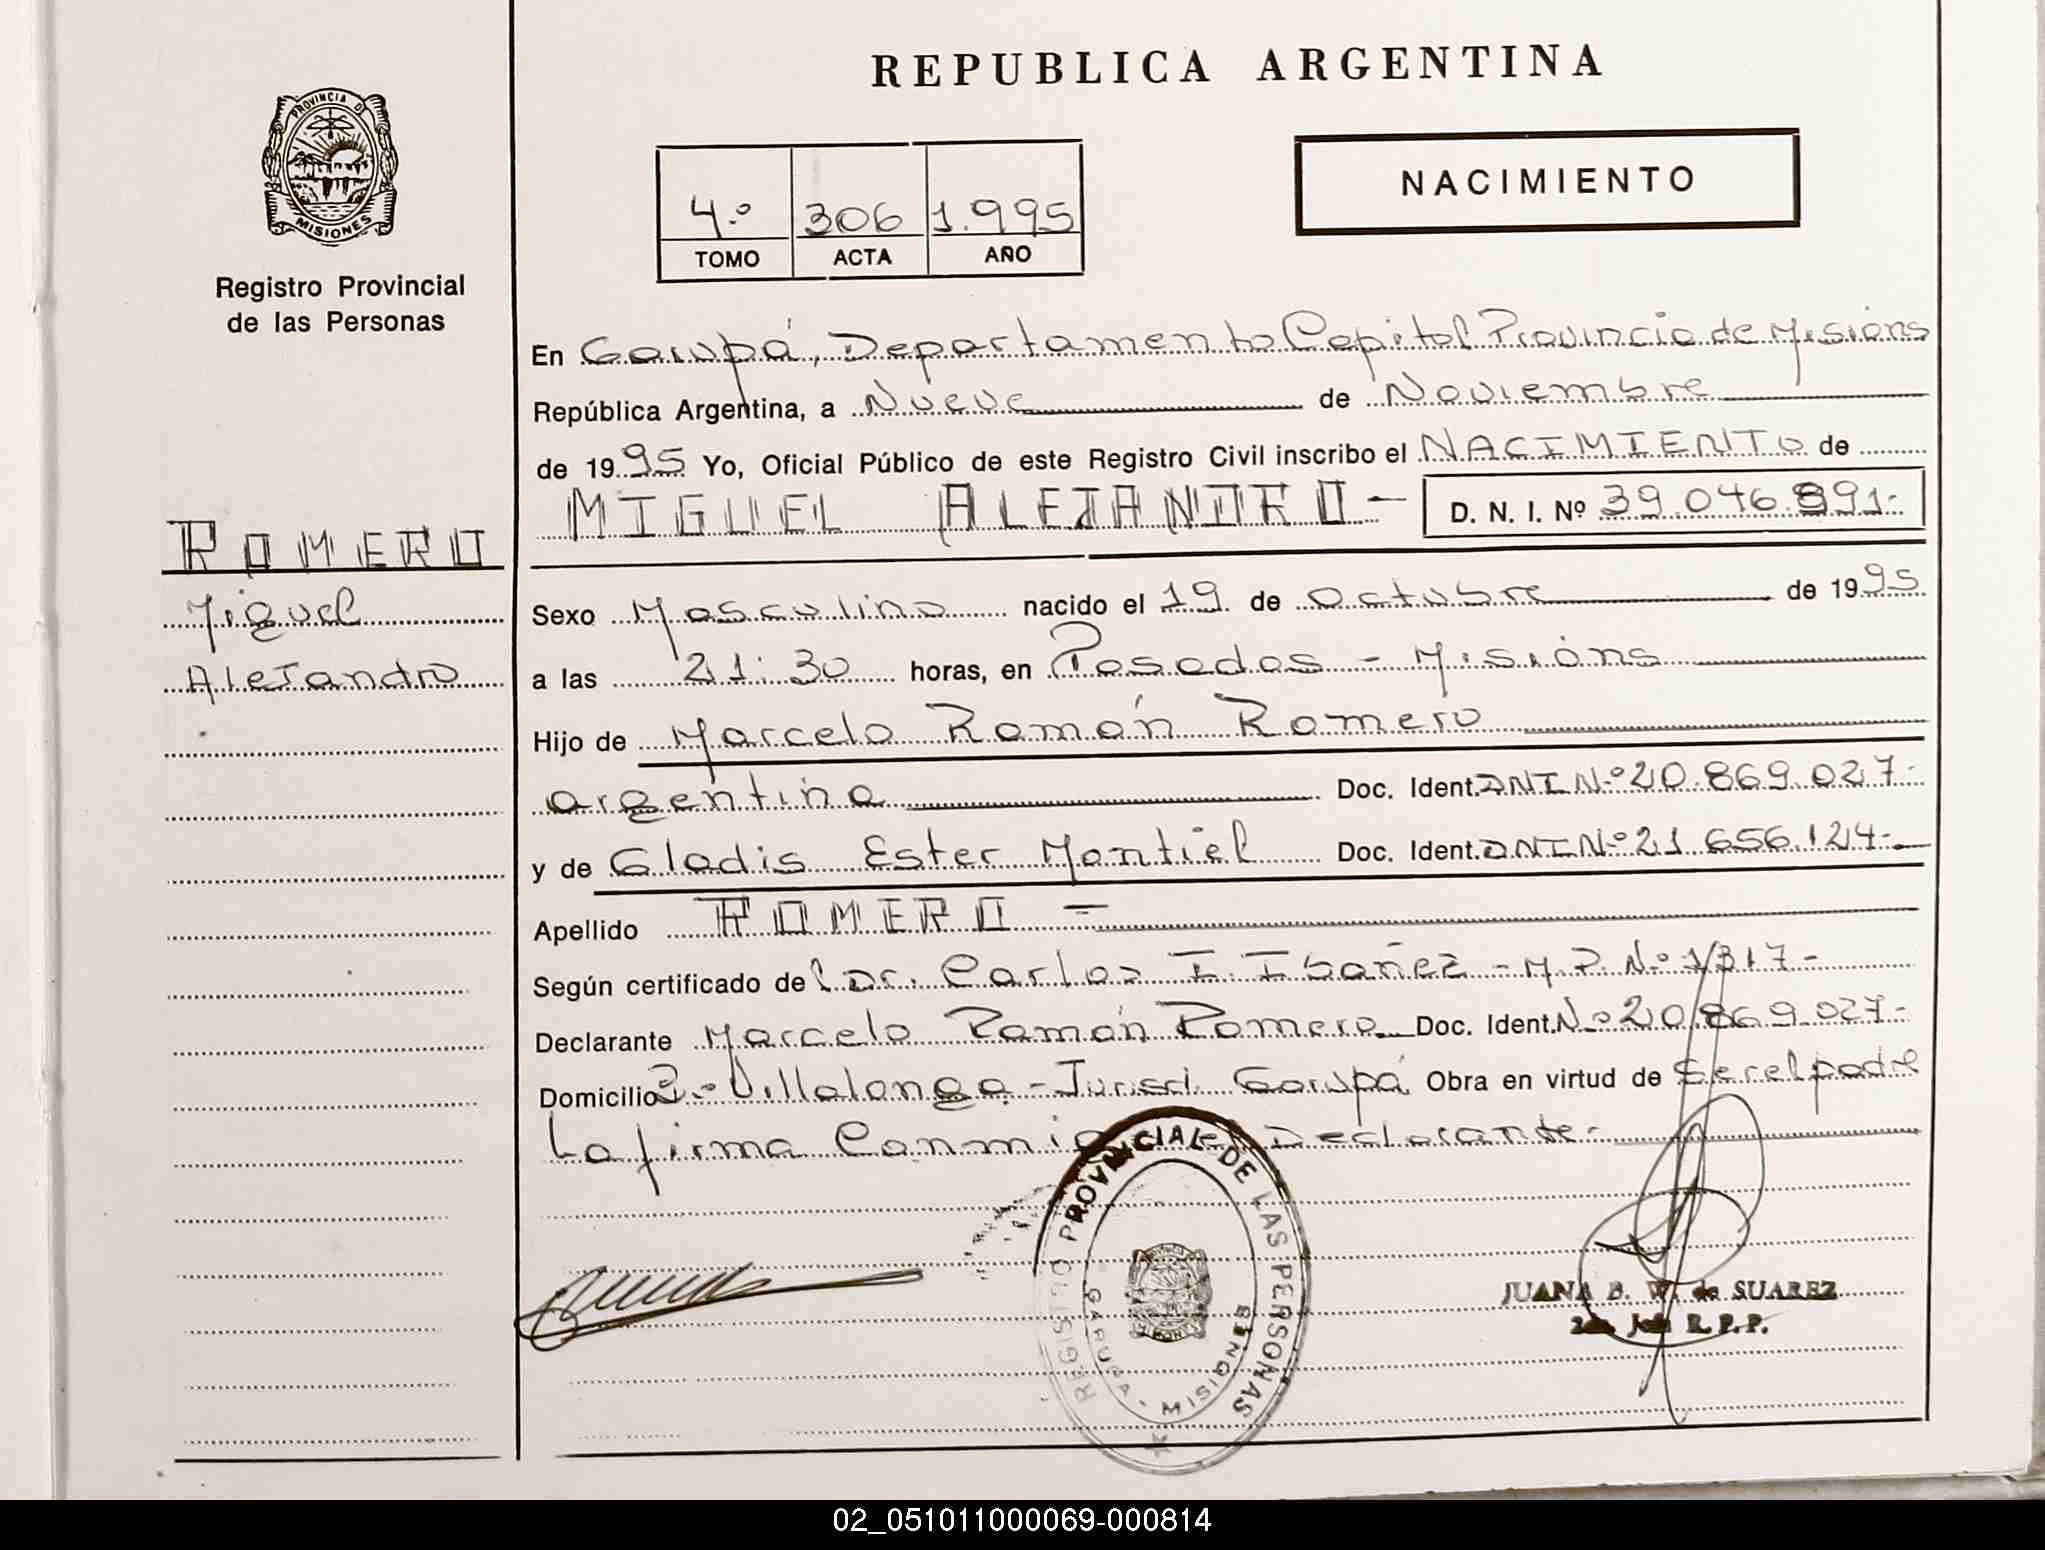 REPUBLICA ARGENTINA
PROVINCIA DE
MISIONES
Registro Provincial
de las Personas
4.º 306 1.995
TOMO ACTA AÑO
NACIMIENTO
En Garupá, Departamento Capital Provincia de Misiones
República Argentina, a Nueve de Noviembre
de 1995 Yo, Oficial Público de este Registro Civil inscribo el NACIMIENTO de
MIGUEL ALEJANDRO - D. N. I. Nº 39.046.891-
ROMERO
Miguel
Alejandro
Sexo Masculino nacido el 19 de octubre de 1995
a las 21:30 horas, en Posadas - Misiones
Hijo de Marcelo Ramón Romero
argentina Doc. Ident. DNI N.º 20.869.027-
y de Gladis Ester Montiel Doc. Ident. DNI Nº 21.656.124-
Apellido ROMERO -
Según certificado del Dr. Carlos I. Ibañez - M.P. N.º 1317-
Declarante Marcelo Ramón Romero Doc. Ident. Nº 20.869.027-
Domicilio Villalonga - Jurisd. Garupá Obra en virtud de Ser el padre
La firma Conmigo el Declarante-
REGISTRO PROVINCIAL DE LAS PERSONAS
GARUPA - MISIONES
JUANA B. W. de SUAREZ
2da Jefe R.P.P.
02_051011000069-000814